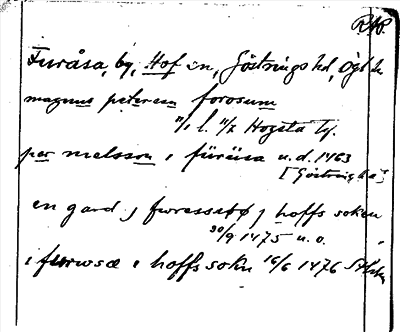 RAP.
Furåsa, by, Hof sn, Göstrings hd, Ögl
magnus peterson forosum
11/1 l. 11/2 Hogsta tg.
per nielsson i furüsa u.d. 1463
[Göstrings hd]
en gard j furessabø j hoffs soken
30/9 1475 u.o.
i furwsæ i hoffs sokn 16/6 1476